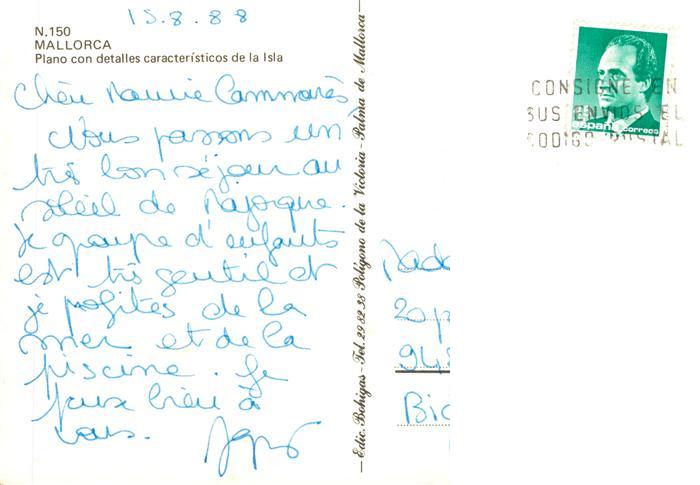 15.8.88
N.150
MALLORCA
Plano con detalles característicos de la Isla
Chère Mamie Cammarès
Nous passons un
très bon séjour au
soleil de Majorque.
Le groupe d'enfants
est très gentil et
je profites de la
mer et de la
piscine. Je
pense bien à
vous.
Edic. Bohigas - Tel. 29 82 38 Polígono de la Victoria - Palma de Mallorca
CONSIGNE EN
SUS ENVIOS EL
CODIGO POSTAL
españa correos
Mada
20
948
Bic